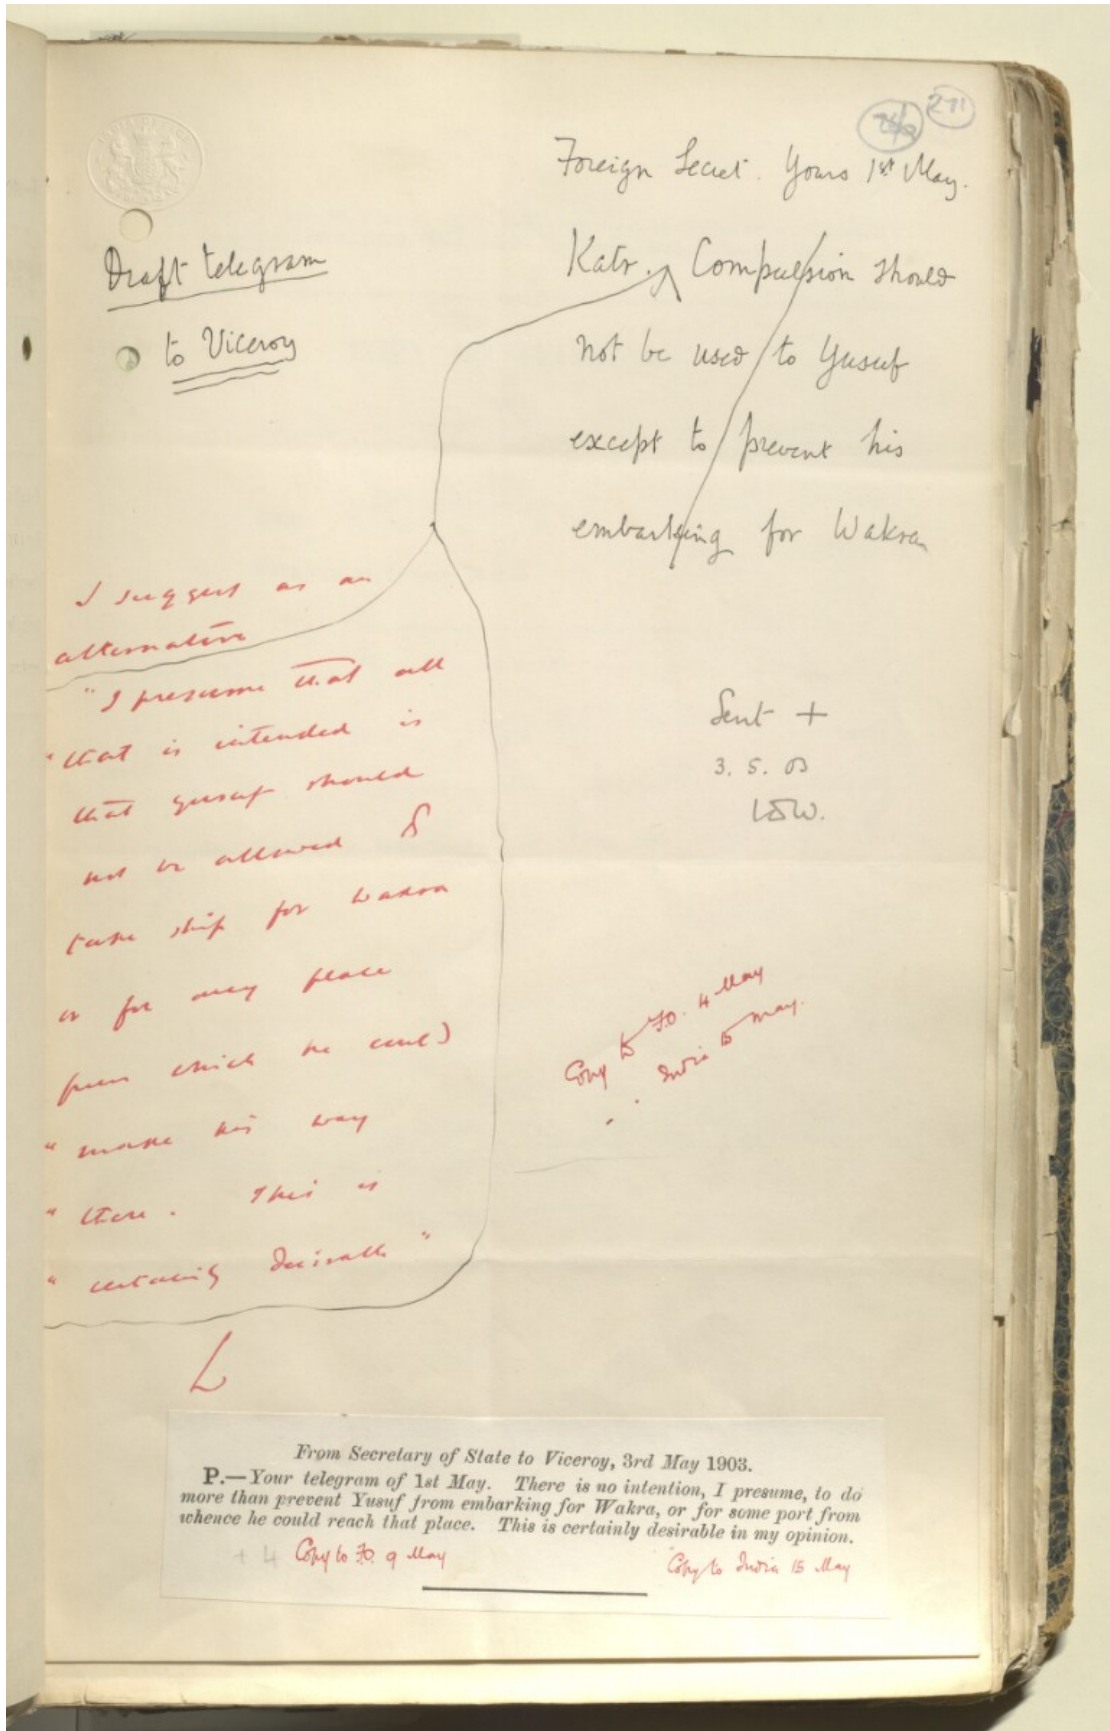 271
Foreign Secret. Yours 1st May.
Draft telegram
to Viceroy
Katr. Compulsion should
not be used to Yusuf
except to prevent his
embarking for Wakra
I suggest as an
alternative
"I presume that all
"that is intended is
that Yusuf should
not be allowed to
take ship for Wakra
or for any place
from which he could
" make his way
" there. This is
" certainly desirable"
L
Sent +
3. 5. 03
Copy to FO. 4 May
India 15 May.
From Secretary of State to Viceroy, 3rd May 1903.
P.—Your telegram of 1st May. There is no intention, I presume, to do
more than prevent Yusuf from embarking for Wakra, or for some port from
whence he could reach that place. This is certainly desirable in my opinion.
+ 4 Copy to FO. 9 May
Copy to India 15 May